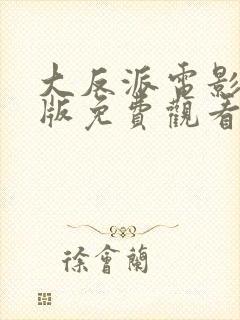 大反派電影
版免費觀看
徐會蘭